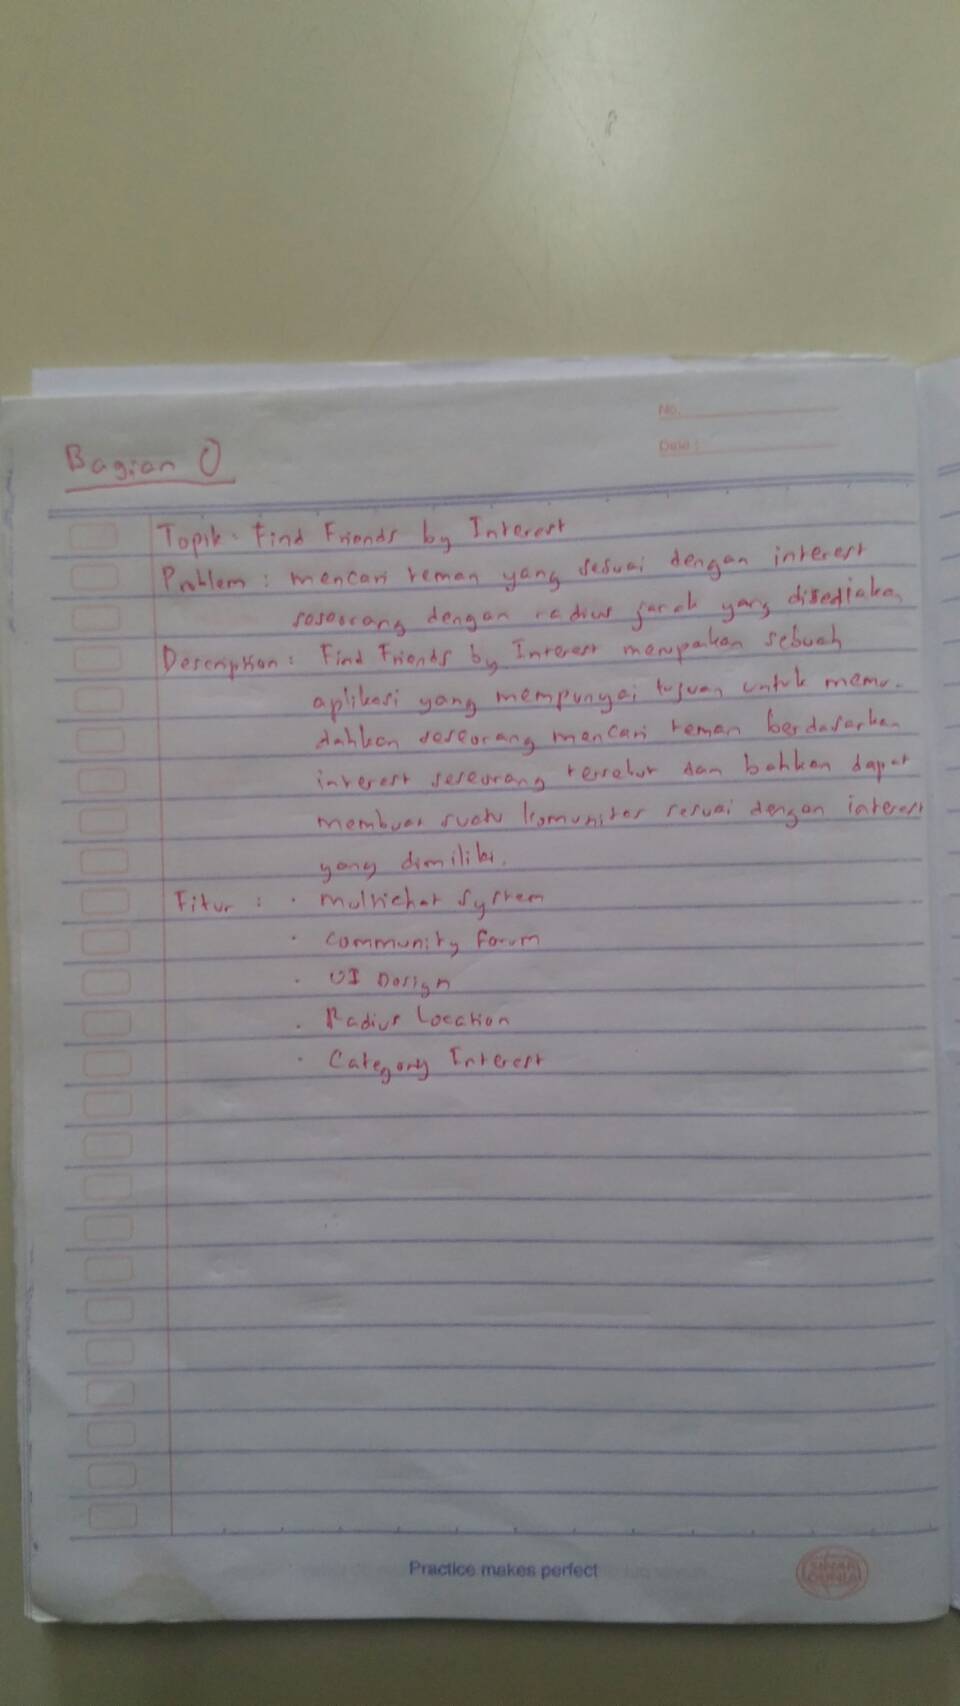 No.
Date :
Bagian 0
Topik : Find Friends by Interest
Problem : mencari teman yang sesuai dengan interest
seseorang dengan radius jarak yang disediakan
Description : Find Friends by Interest merupakan sebuah
aplikasi yang mempunyai tujuan untuk memu-
dahkan seseorang mencari teman berdasarkan
interest seseorang tersebut dan bahkan dapat
membuat suatu komunitas sesuai dengan interest
yang dimiliki.
Fitur : · Multichat System
· Community Forum
· UI Design
· Radius Location
· Category Interest
Practice makes perfect
SINAR
DUNIA